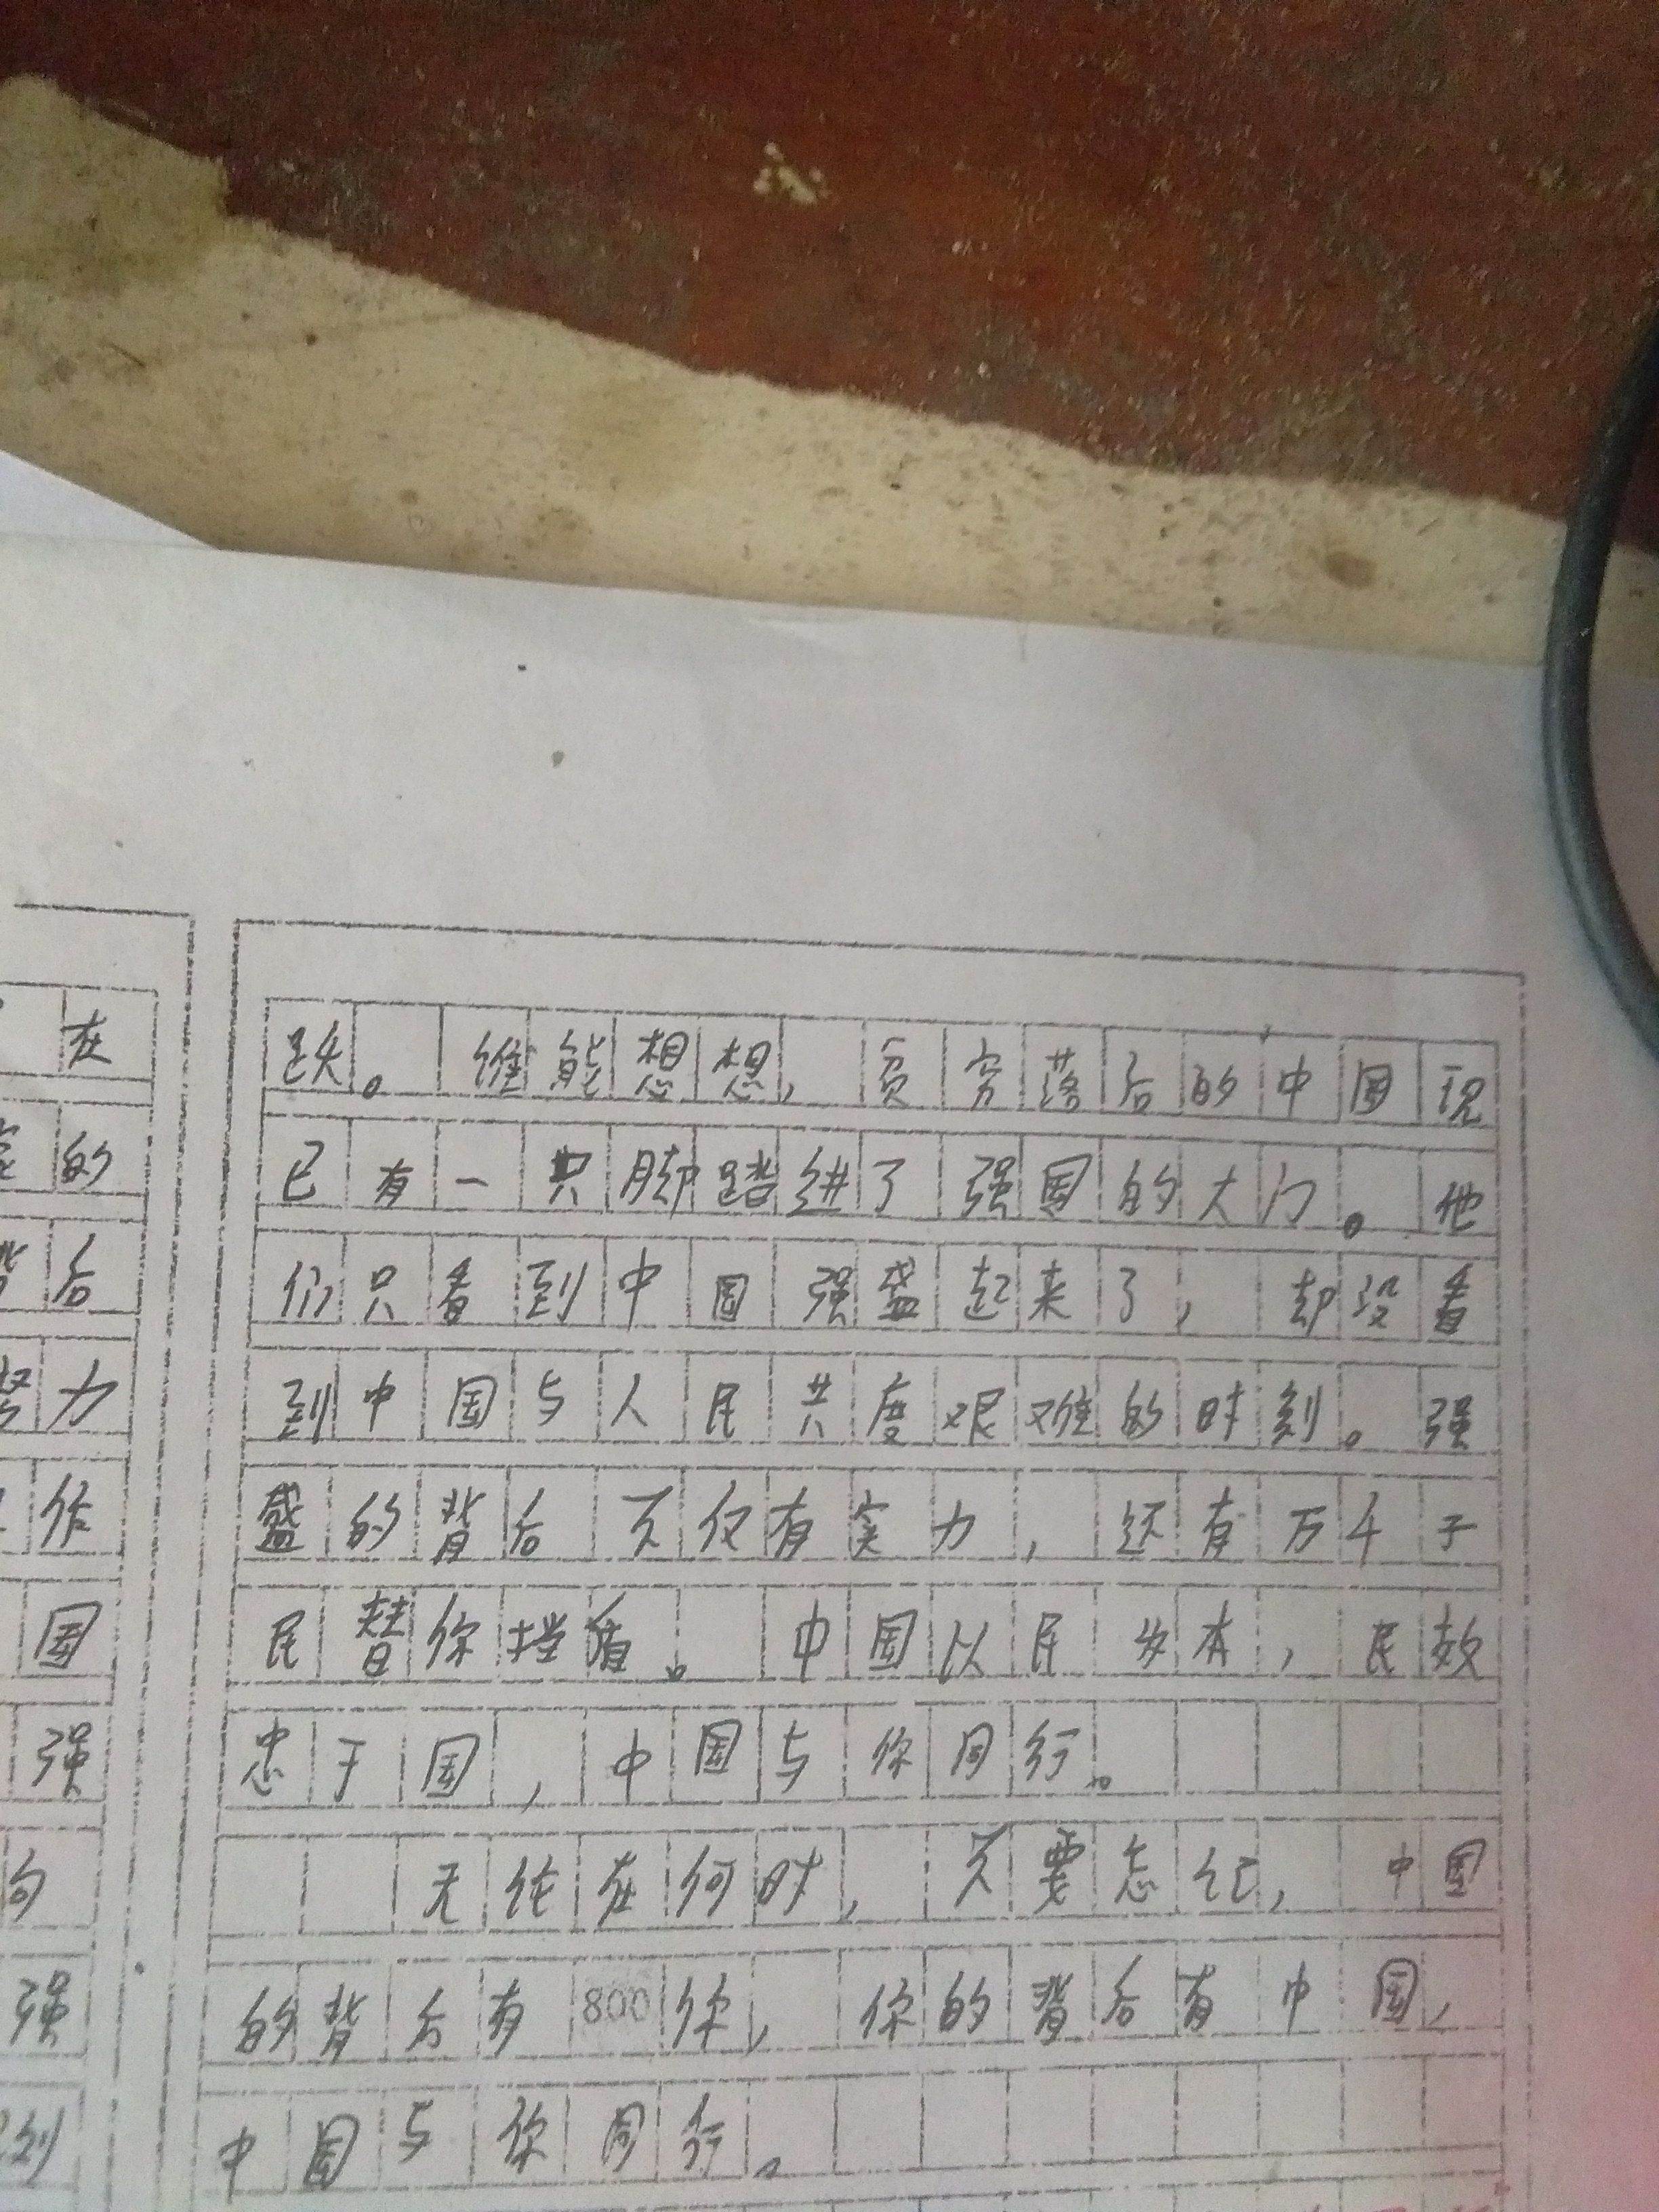 在
的
后
力
作
国
强
向
强
到
跃。谁能想想,贫穷落后的中国现
已有一只脚踏进了强国的大门。他
们只看到中国强盛起来了,却没看
到中国与人民共度艰难的时刻。强
盛的背后不仅有实力,还有万千子
民替你挡盾。中国以民为本,民效
忠于国,中国与你同行。
无论在何时,不要忘记,中国
的背后有800你,你的背后有中国,
中国与你同行。